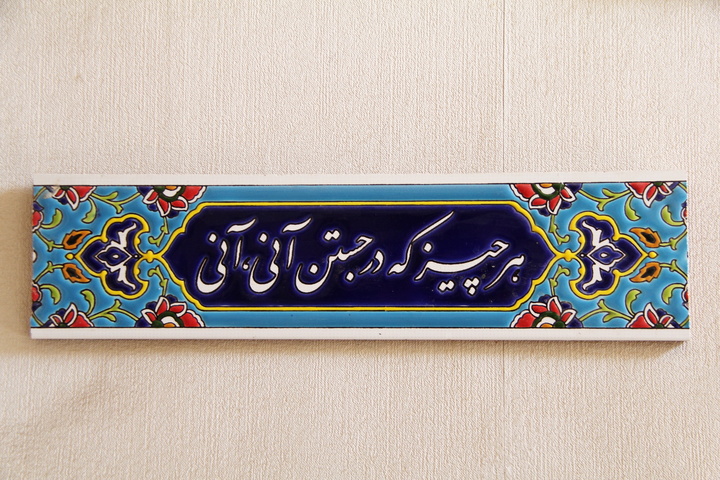 هر چیز که در جستن آنی، آنی